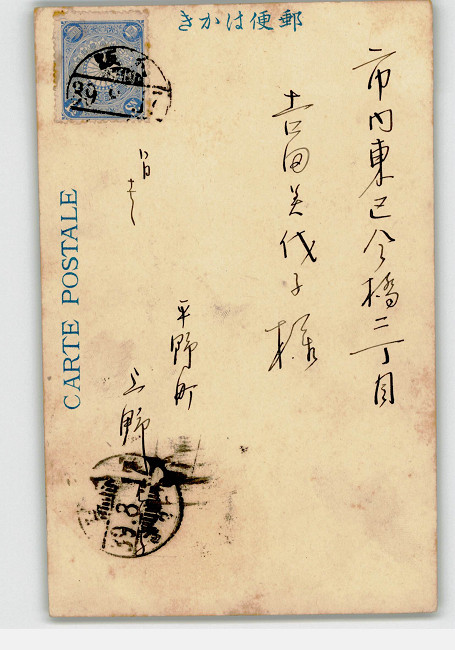 郵便はかき
CARTE POSTALE
市内東区今橋三丁目
吉田美代子様
平野町
上野
39
39.8